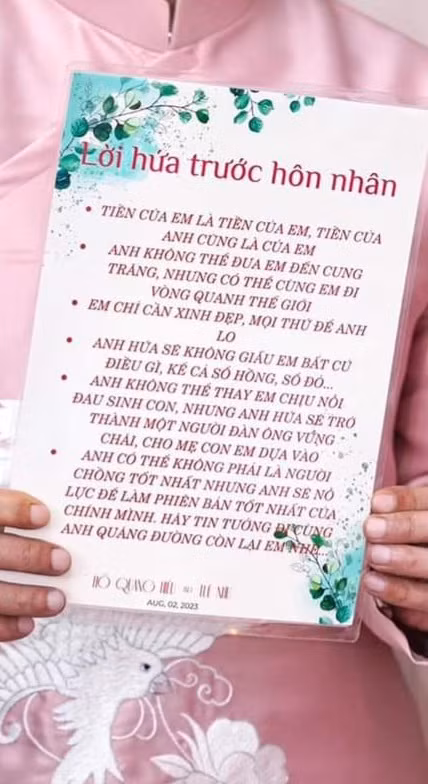 Lời hứa trước hôn nhân
• TIỀN CỦA EM LÀ TIỀN CỦA EM, TIỀN CỦA
ANH CŨNG LÀ CỦA EM
• ANH KHÔNG THỂ ĐƯA EM ĐẾN CUNG
TRĂNG, NHƯNG CÓ THỂ CÙNG EM ĐI
VÒNG QUANH THẾ GIỚI
• EM CHỈ CẦN XINH ĐẸP, MỌI THỨ ĐỂ ANH
LO
• ANH HỨA SẼ KHÔNG GIẤU EM BẤT CỨ
ĐIỀU GÌ, KỂ CẢ SỔ HỒNG, SỔ ĐỎ...
• ANH KHÔNG THỂ THAY EM CHỊU NỖI
ĐAU SINH CON, NHƯNG ANH HỨA SẼ TRỞ
THÀNH MỘT NGƯỜI ĐÀN ÔNG VỮNG
CHÃI, CHO MẸ CON EM DỰA VÀO
• ANH CÓ THỂ KHÔNG PHẢI LÀ NGƯỜI
CHỒNG TỐT NHẤT NHƯNG ANH SẼ NỖ
LỰC ĐỂ LÀM PHIÊN BẢN TỐT NHẤT CỦA
CHÍNH MÌNH. HÃY TIN TƯỞNG ĐI CÙNG
ANH QUÃNG ĐƯỜNG CÒN LẠI EM NHÉ...
HỒ QUANG HIẾU
AUG, 02, 2023